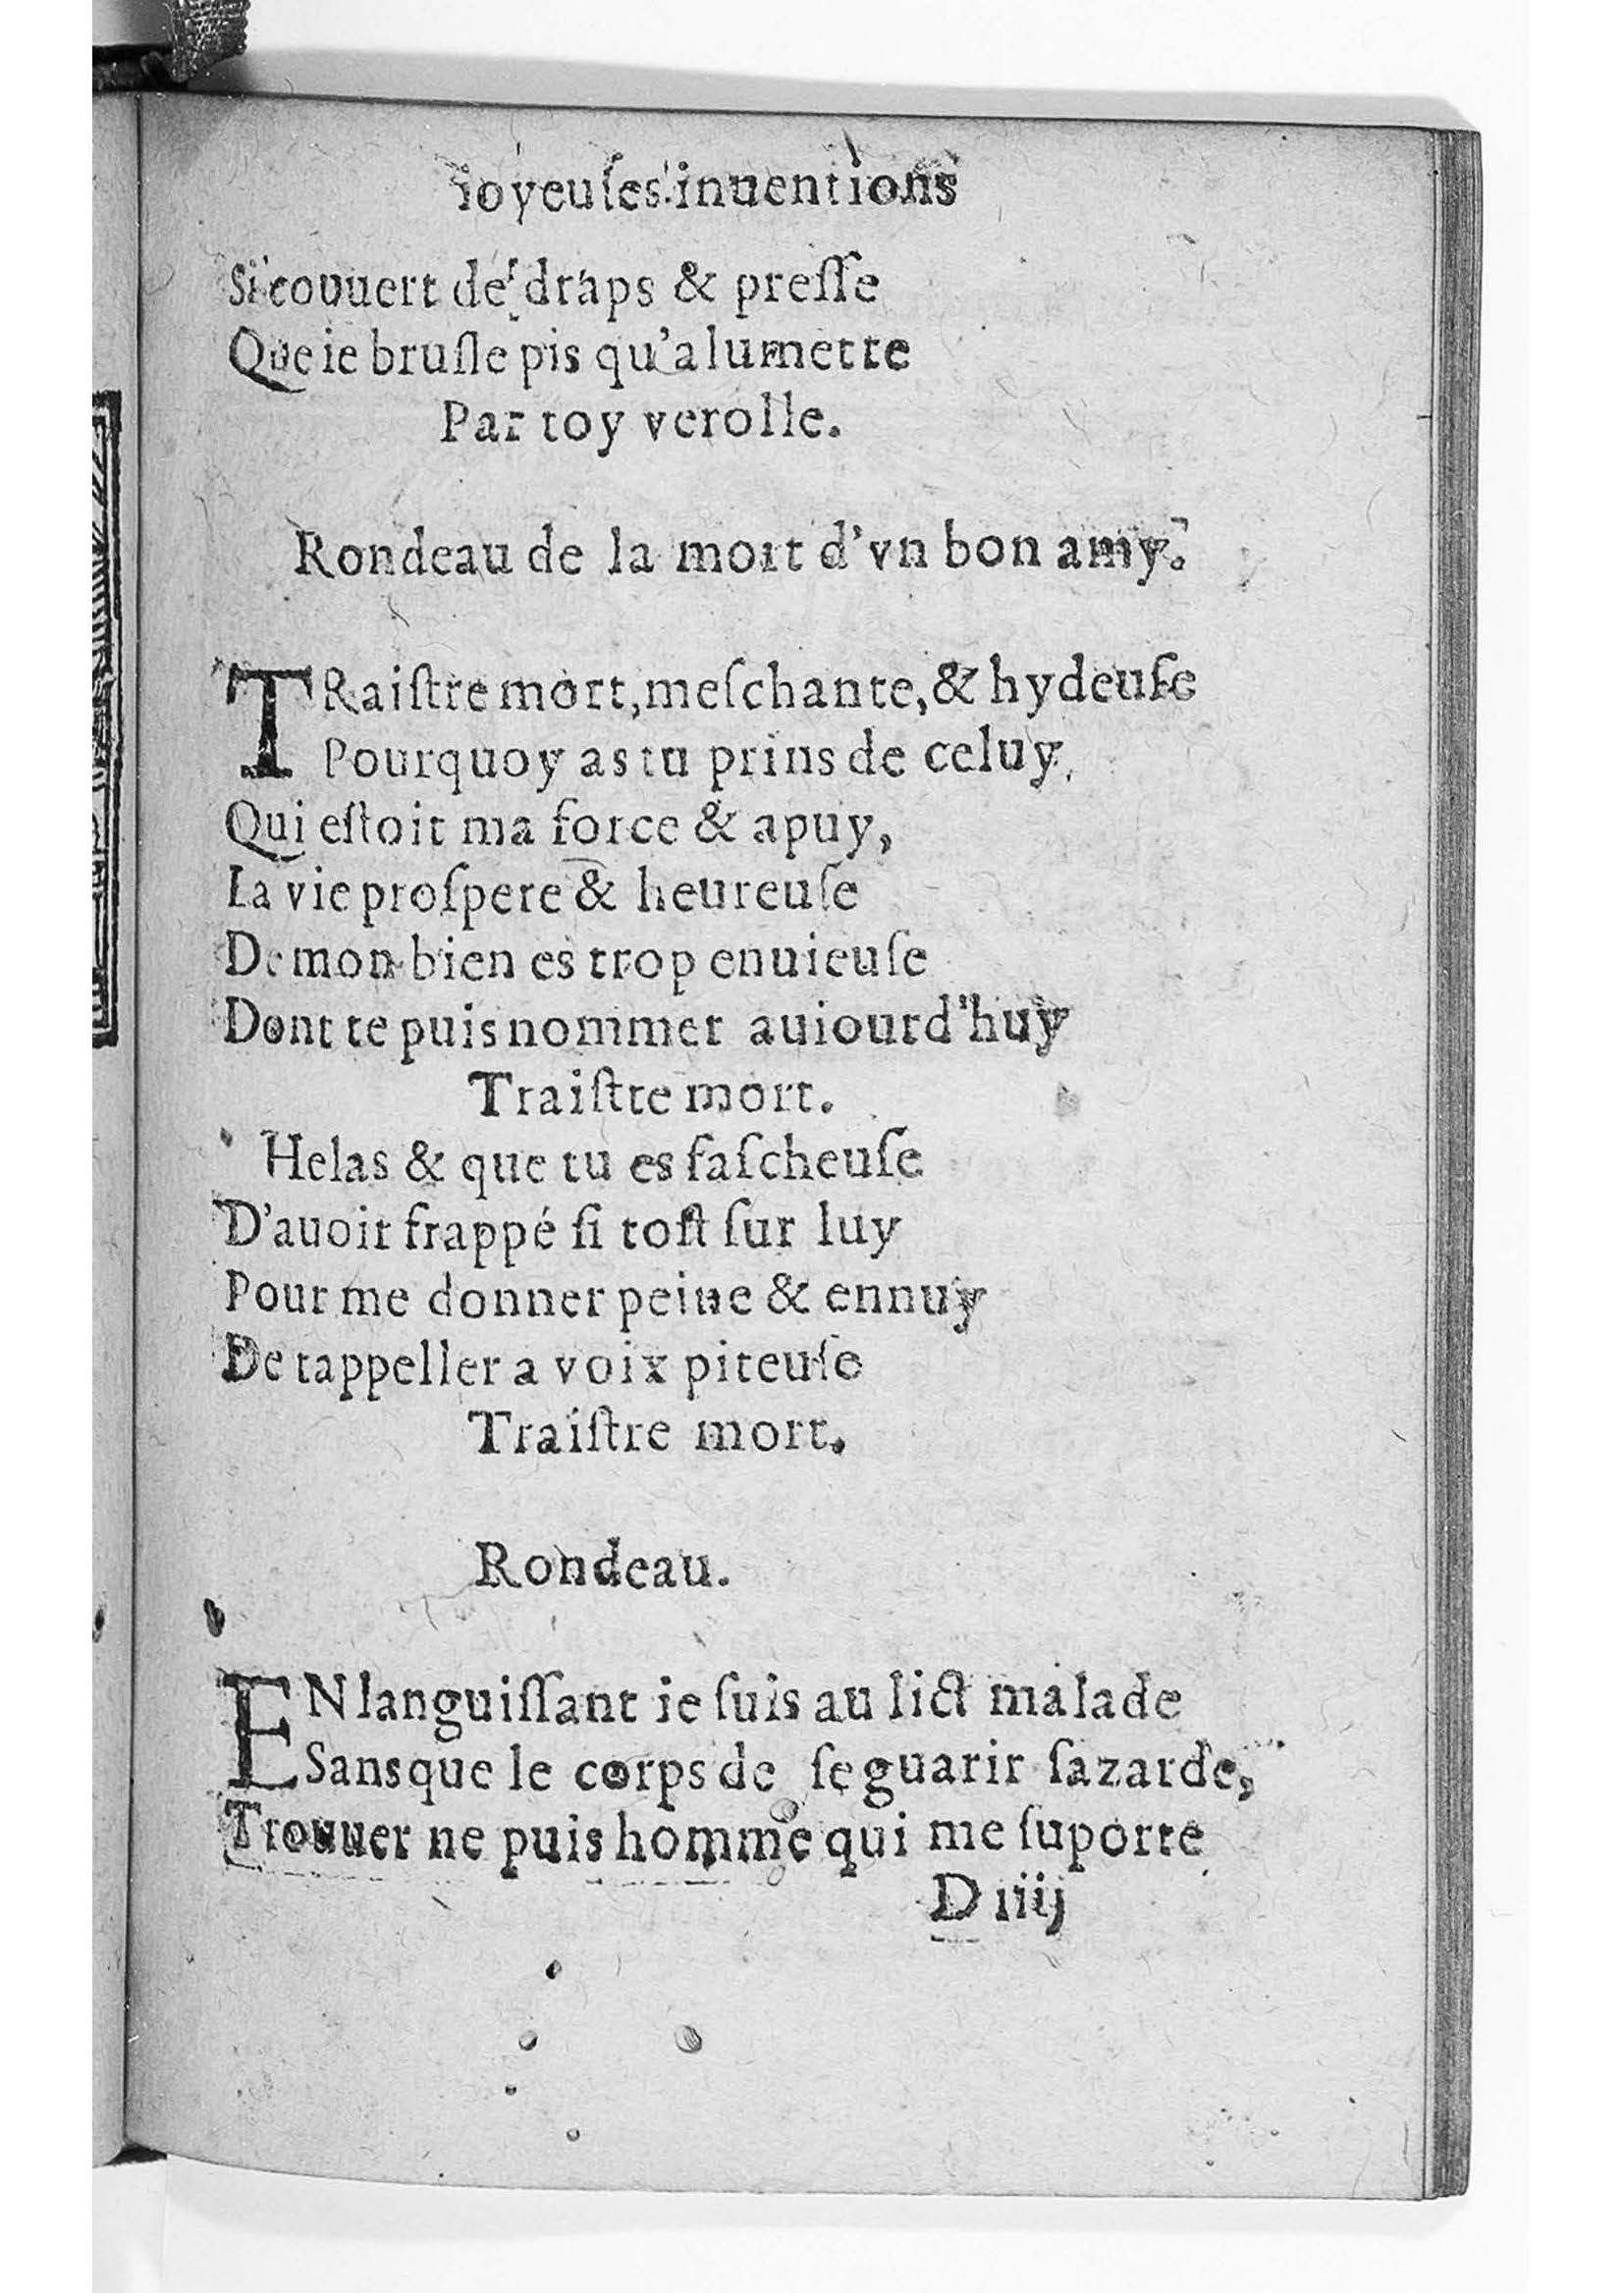 ioyeuſes inuentions
Si couuert de draps & preſſe
Que ie bruſle pis qu'alumette
Par toy verolle.
Rondeau de la mort d'vn bon amy.
TRaiſtre mort, meſchante, & hydeuſe
Pourquoy as tu prins de celuy,
Qui eſtoit ma force & apuy,
La vie proſpere & heureuſe
De mon bien es trop enuieuſe
Dont te puis nommer auiourd'huy
Traiſtre mort.
Helas & que tu es faſcheuſe
D'auoir frappé ſi toſt ſur luy
Pour me donner peine & ennuy
De tappeller a voix piteuſe
Traiſtre mort.
Rondeau.
EN languiſſant ie ſuis au lict malade
Sans que le corps de ſe guarir ſazarde,
Trouuer ne puis homme qui me ſuporte
D iiij